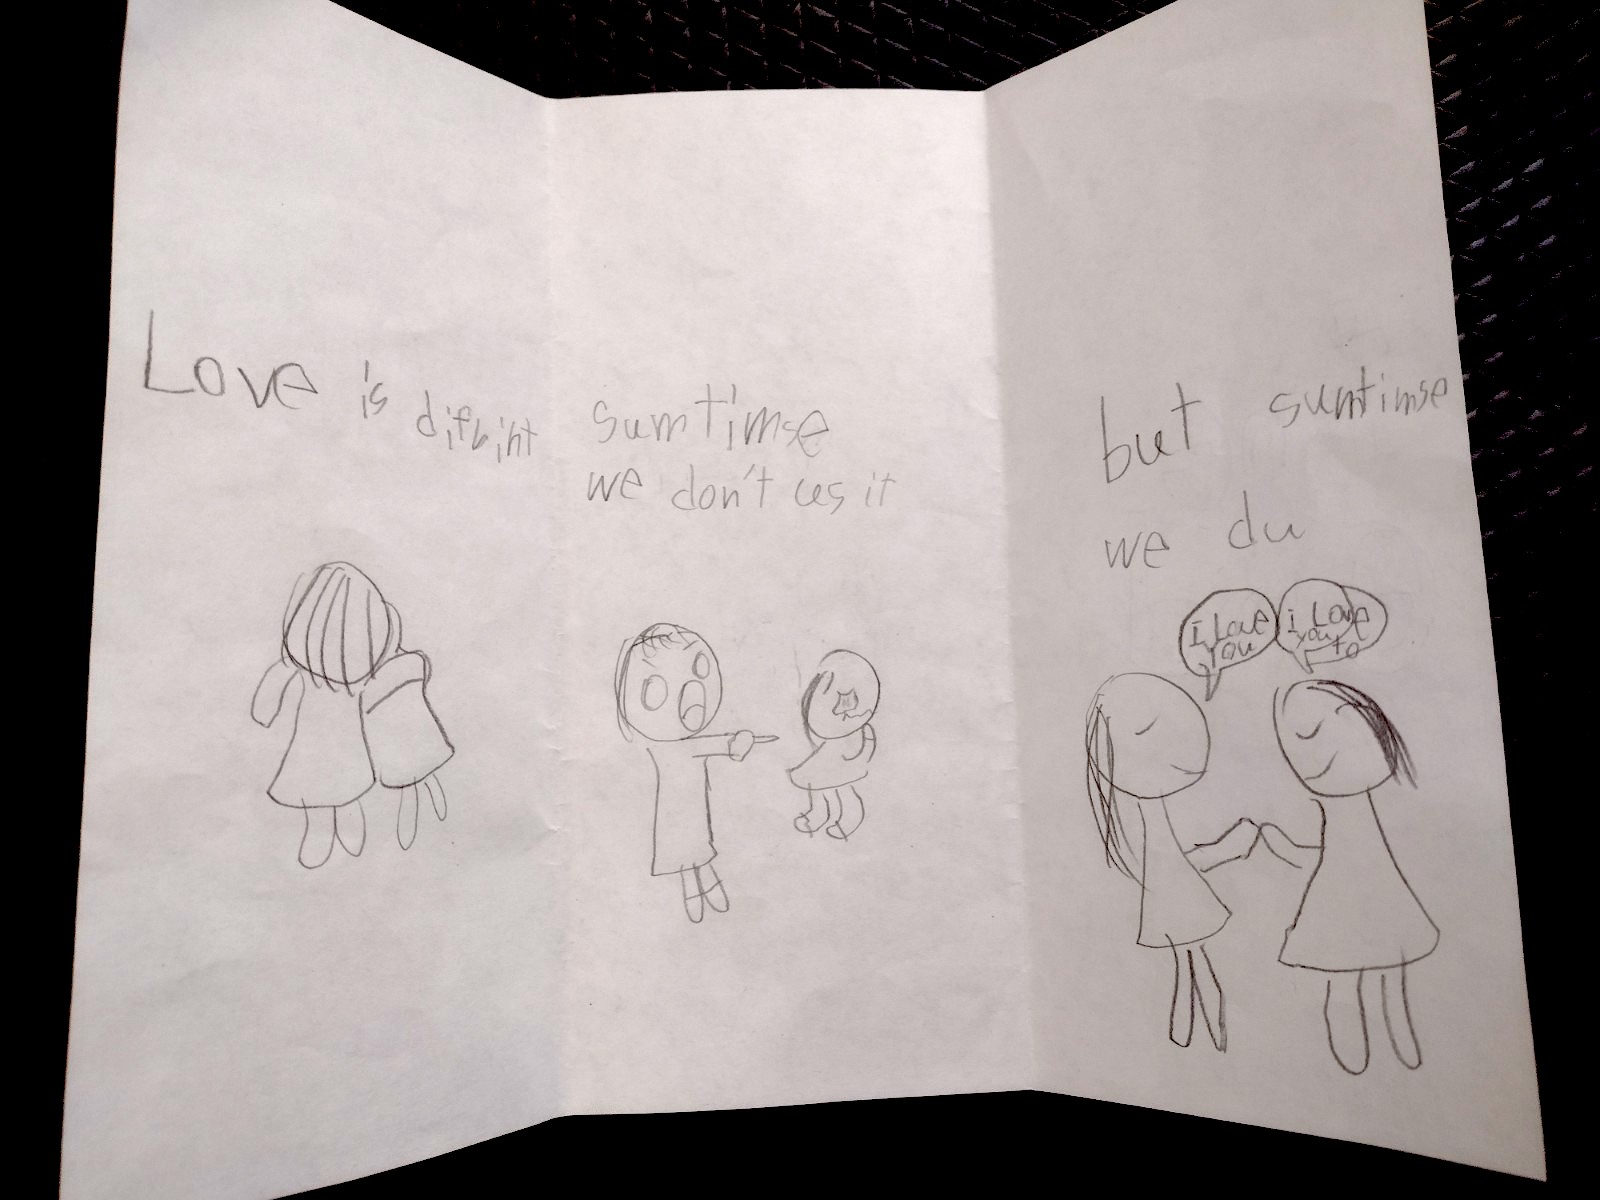 Love is difrint
sumtimse
we don't us it
but sumtimse
we du
I Love
you
i Love
you to